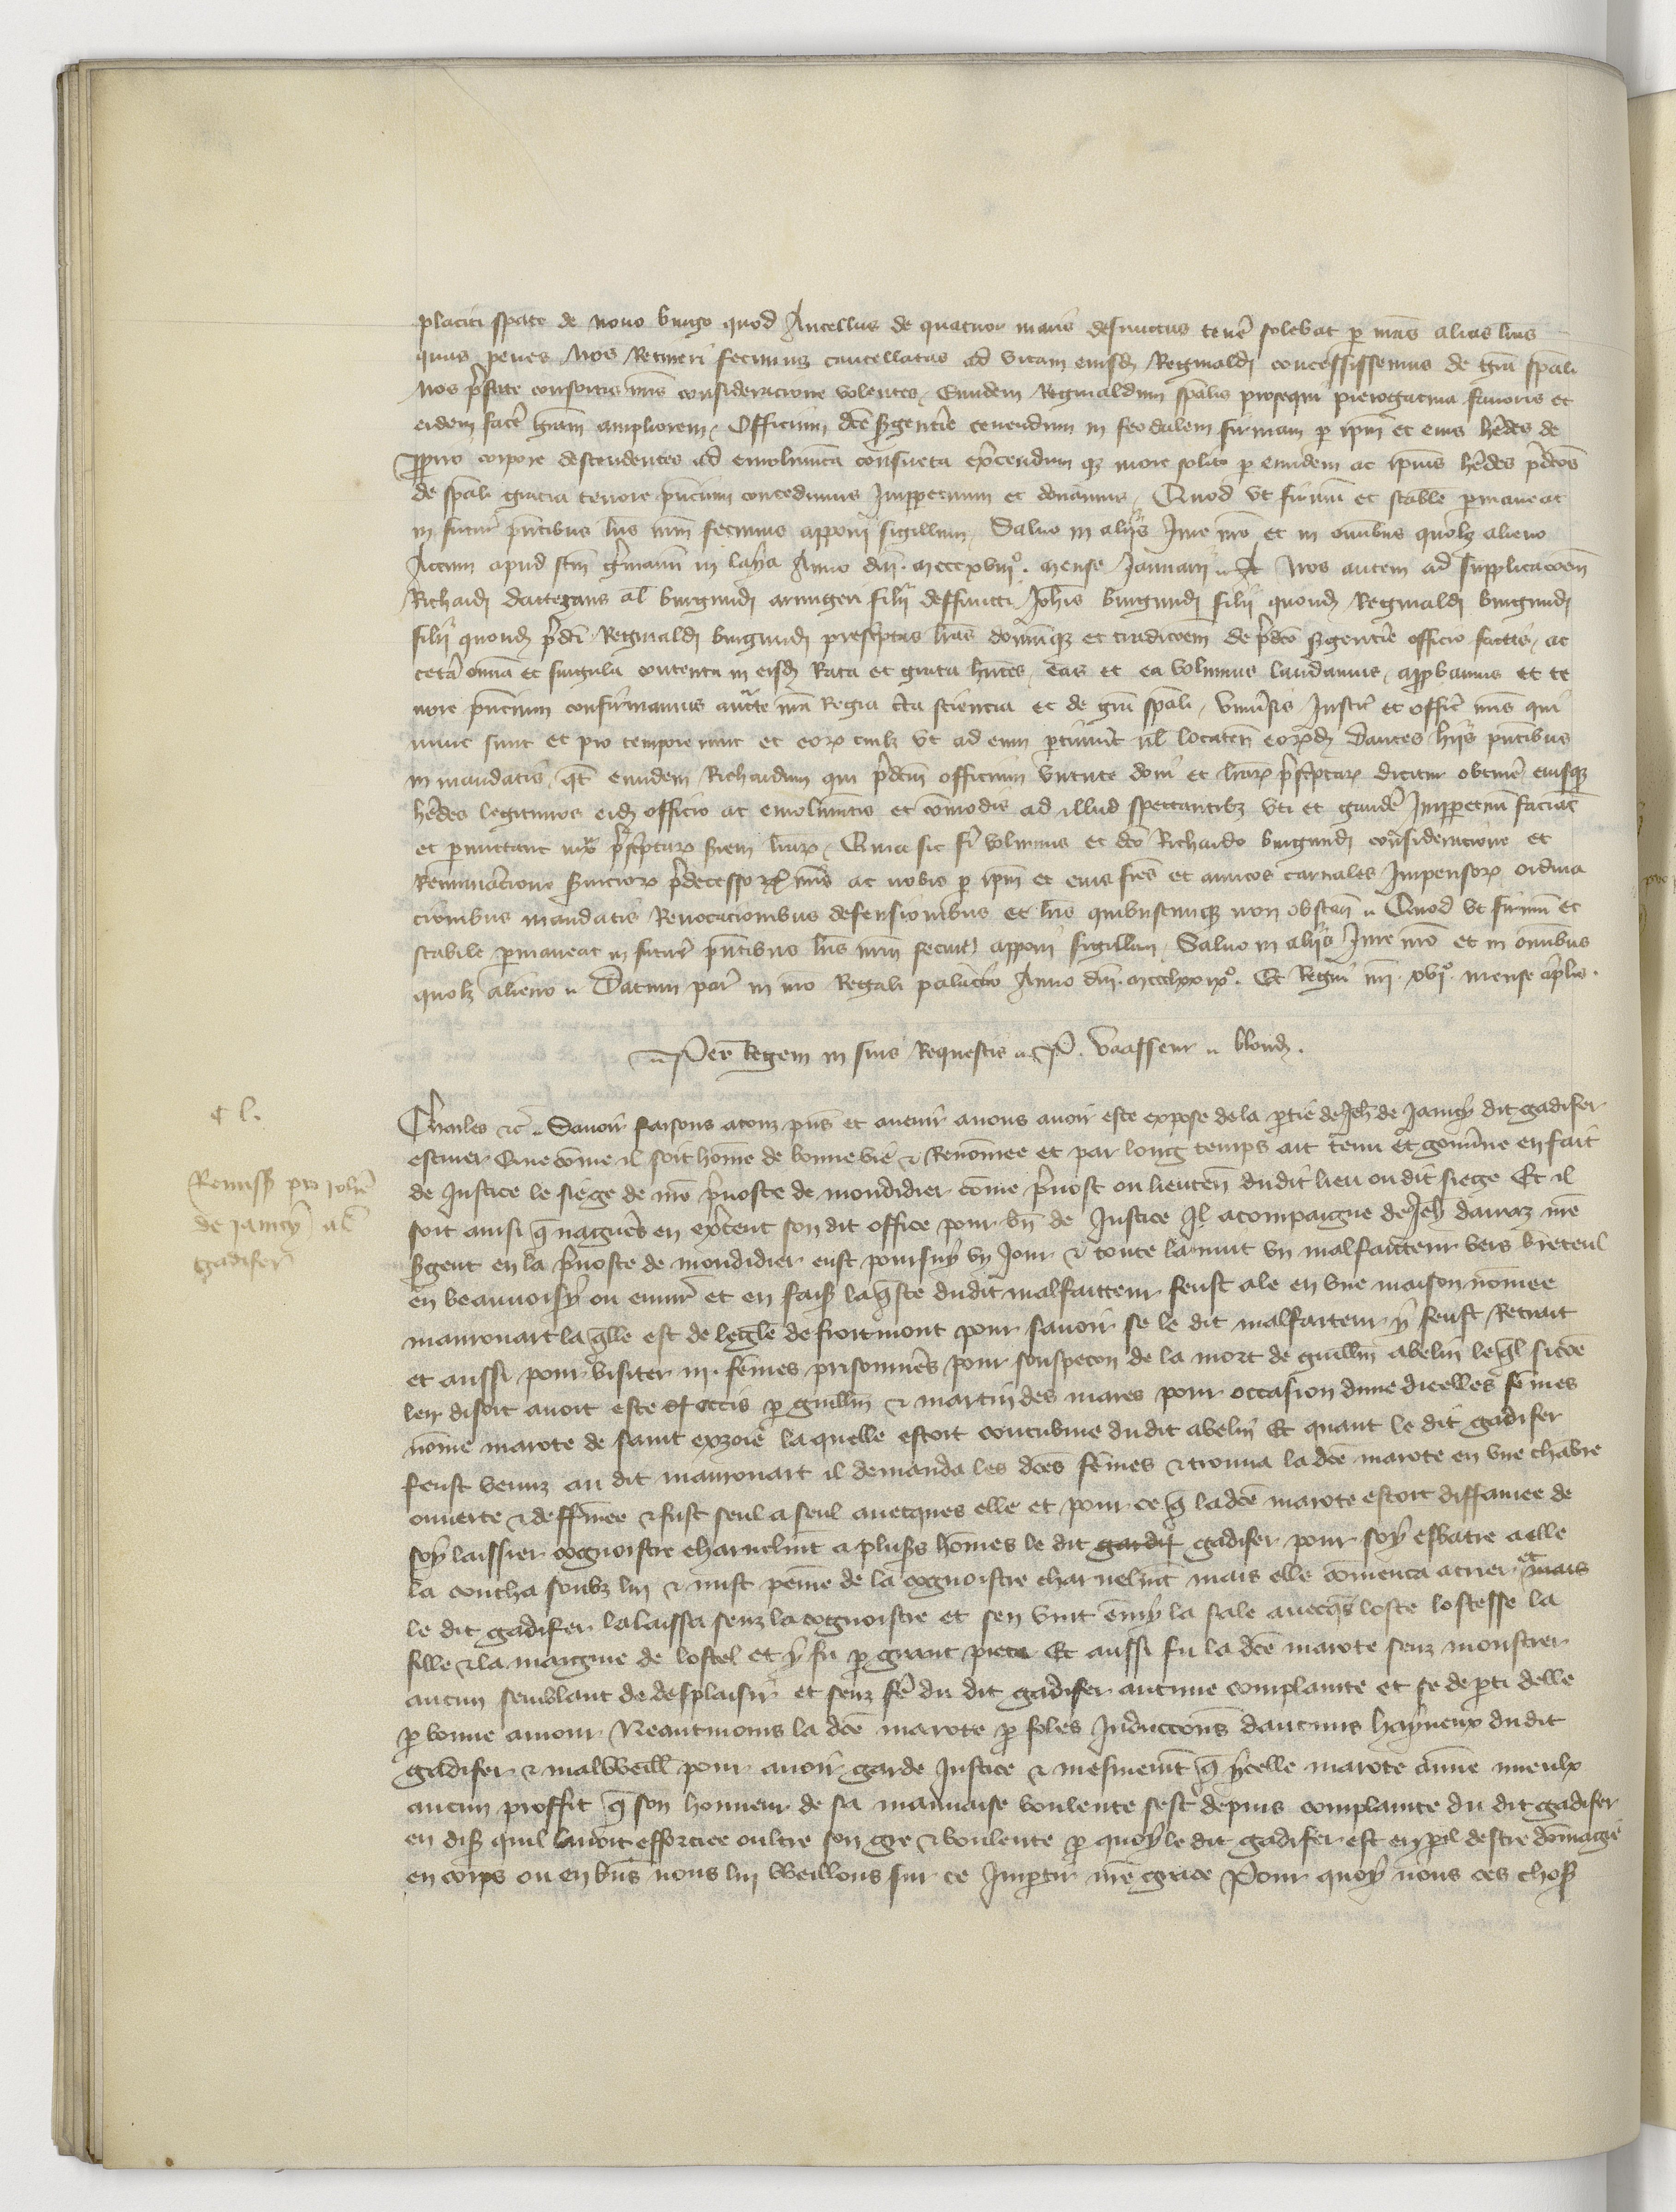 placiti spate de novo burgo quod Ancellus de quatuor maris defunctus tenere solebat p alias lras
quas penes nos retineri fecimus cancellatas ad vitam eiusd Reginaldi concessissemus de gra spali
Nos pfate consortis nre consideracione volentes Eundem Reginaldum spalis prosequi prerogativa favoris et
eidem facere gram ampliorem Officium dce sgenterie tenendum in feodalem firmam p ipm et eius hedes de
pprio corpore descendentes ad emolumenta consueta excendum qz more solito p eundem ac ipius hedes pdcos
de spali gracia tenore pncium concedimus Imppetuum et donamus Quod ut firmu et stabile pmaneat
in futur pntibus lris nrm fecimus apponi sigillum Salvo in aliis Jure nro et in omibus quolz alieno
Actum apud scm gmanu in laya Anno dni mcccxviiio mense Januarii Nos autem ad supplicacoem
Richardi al burgundi armigeri filii deffuncti Johis burgundi filii quond Reginaldi burgundi
filii quond pdci Reginaldi burgundi prescptas lras donumqz et tradicoem de pdco sgenterie officio factis ac
cetera omia et singula contenta in eisd Rata et grata hntes eas et ea volumus laudamus appbamus et te
nore pncium confirmamus aucte nra Regia cta sciencia et de gra spali Universis Justic et offic nris qui
nunc sunt et pro tempore erunt et eorum cuilz ut ad eum ptinuit vel locaten eorumd Dantes hiis pntibus
in mandatis qt eundem Richardum qui pdcm officium virtute doni et lrarum pscptarum dicitur obtinere eiusqz
hedes legitimos eid officio ac emolumtis et comodis ad illud spectantibz uti et gaudere Imppetuu faciat
et pmittant iux pscptarum siem lrarum Quia sic fi volumus et dco Richardo burgundi consideracione et
Remuneracione serviciorum pdecessorum nris ac nobis p ipm et eius fres et amicos carnales Impensorum ordina
cionibus mandatis Revocacionibus defensionibus et lris quibuscunqz non obstan Quod ut firmu et
stabile pmaneat in futur pntibus lris nrm fecimus apponi sigillum Salvo in aliis Jure nro et in omibus
quolz alieno Datum par in nro Regali palacio Anno dni mccclxxixo Et Regni nri xvio mense aplis
Per Regem in suis Requestis P. Vaasseur blond
Charles etc Savoir faisons a touz pns et avenir avons avoir este expose de la ptie de Jeh de Jancy dit gadifer
escuier Que come il soit home de bonne vie & Renomee et par long temps ait tenu et gouverne en fait
de Justice le siege de nre pvoste de mondidier come pvost ou lieuten dudit lieu ou dit siege Et il
soit ainsi q naguers en excent son dit office pour bn de Justice Il acompaigne de Jeh darraz nre
sgent en la pvoste de mondidier eust poursuy un Jour & toute la nuit un malfaitteur vers breteul
en beauvoisy ou envir et en fais la queste dudit malfaitteur feust ale en une maison nomee
maurouart la qlle est de leglise de froitmont pour savoir se le dit malfaiteur y feust Retrait
et aussi pour visiter iii femes prisonnieres pour souspecon de la mort de guillm abelin leql sicoe
len disoit avoit este occis p guillm & martin des mares pour occasion dune dicelles femes
nomee marote de saint la quelle estoit concubine dudit abelin Et quant le dit gadifer
feust venuz au dit maurouart il demanda les dces femes & trouva la dce marote en une chabre
ouverte & deffermee & fust seul a seul avecques elle et pour ce q la dce marote estoit diffamee de
soy laissier cognoistre charnelmt a pluss homes le dit gardif gadifer pour soy esbatre a elle
la coucha soubz lui & mist peine de la cognoistre charnelmt mais elle comenca a crier et mais
le dit gadifer la laissa senz la cognoistre et sen vint emy la sale avecqs loste lostesse la
fille & la maignie de lostel et y fu p grant piece Et aussi fu la dce marote senz monstrer
aucun semblant de desplaisir et senz fe du dit gadifer aucune complainte et se depti delle
p bonne amour Neantmoins la dce marote p foles Inducions daucuns hayneux dudit
gadifer & malveill pour avoir garde Justice & mesmemt q ycelle marote aime mieulx
aucun proffit q son honneur de sa mauvaise voulente sest depuis complainte du dit gadifer
en dis quil lavoit efforciee oultre son gre & voulente p quoy le dit gadifer est en pil destre domagie
en corps ou en bns nous lui Weillons sur ce Impartir nre grace Pour quoy nous ces chos
cl.
Remiss pro iohe
de jancy al
gadifer